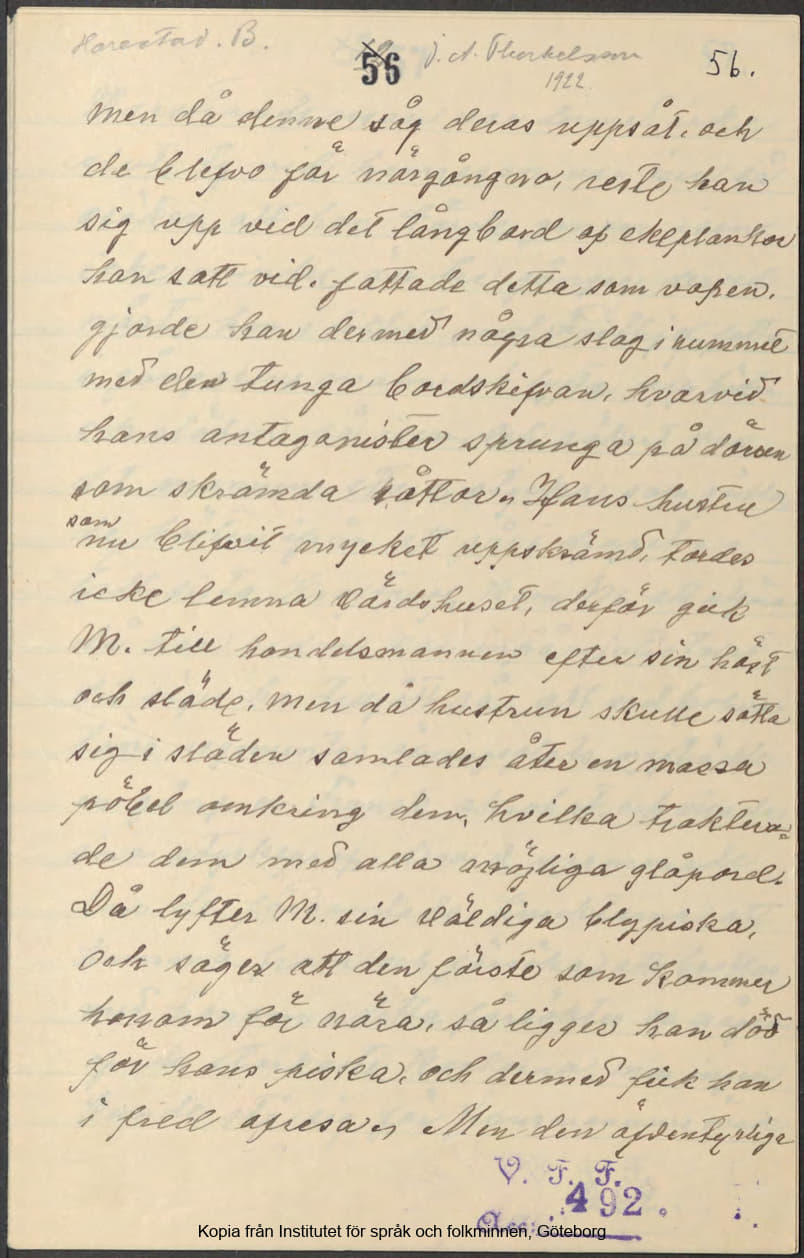 Harestad. B.
56
J. A. Thorkelsson
1922
56.
men då denne såg deras uppsåt, och
de blefvo för närgångna, reste han
sig upp vid det långbord af ekplankor
han satt vid. fattade detta som vapen.
gjorde han dermed några slag i rummet
med den tunga bordskifvan, hvarvid
hans antagonister sprunga på dörren
som skrämda råttor„ Hans hustru
som
nu blifvit mycket uppskrämd, tordes
icke lemna värdshuset, derför gick
M. till handelsmannen efter sin häst
och släde, men då hustrun skulle sätta
sig i släden samlades åter en massa
pöbel omkring dem, hvilka traktera=
de dem med alla möjliga glåpord.
Då lyfter M. sin väldiga blypiska,
och säger att den förste som kommer
honom för nära, så ligger han död
för hans piska, och dermed fick han
i fred afresa„ Men den äfventyrliga
V. F. F.
492.
Kopia från Institutet för språk och folkminnen, Göteborg